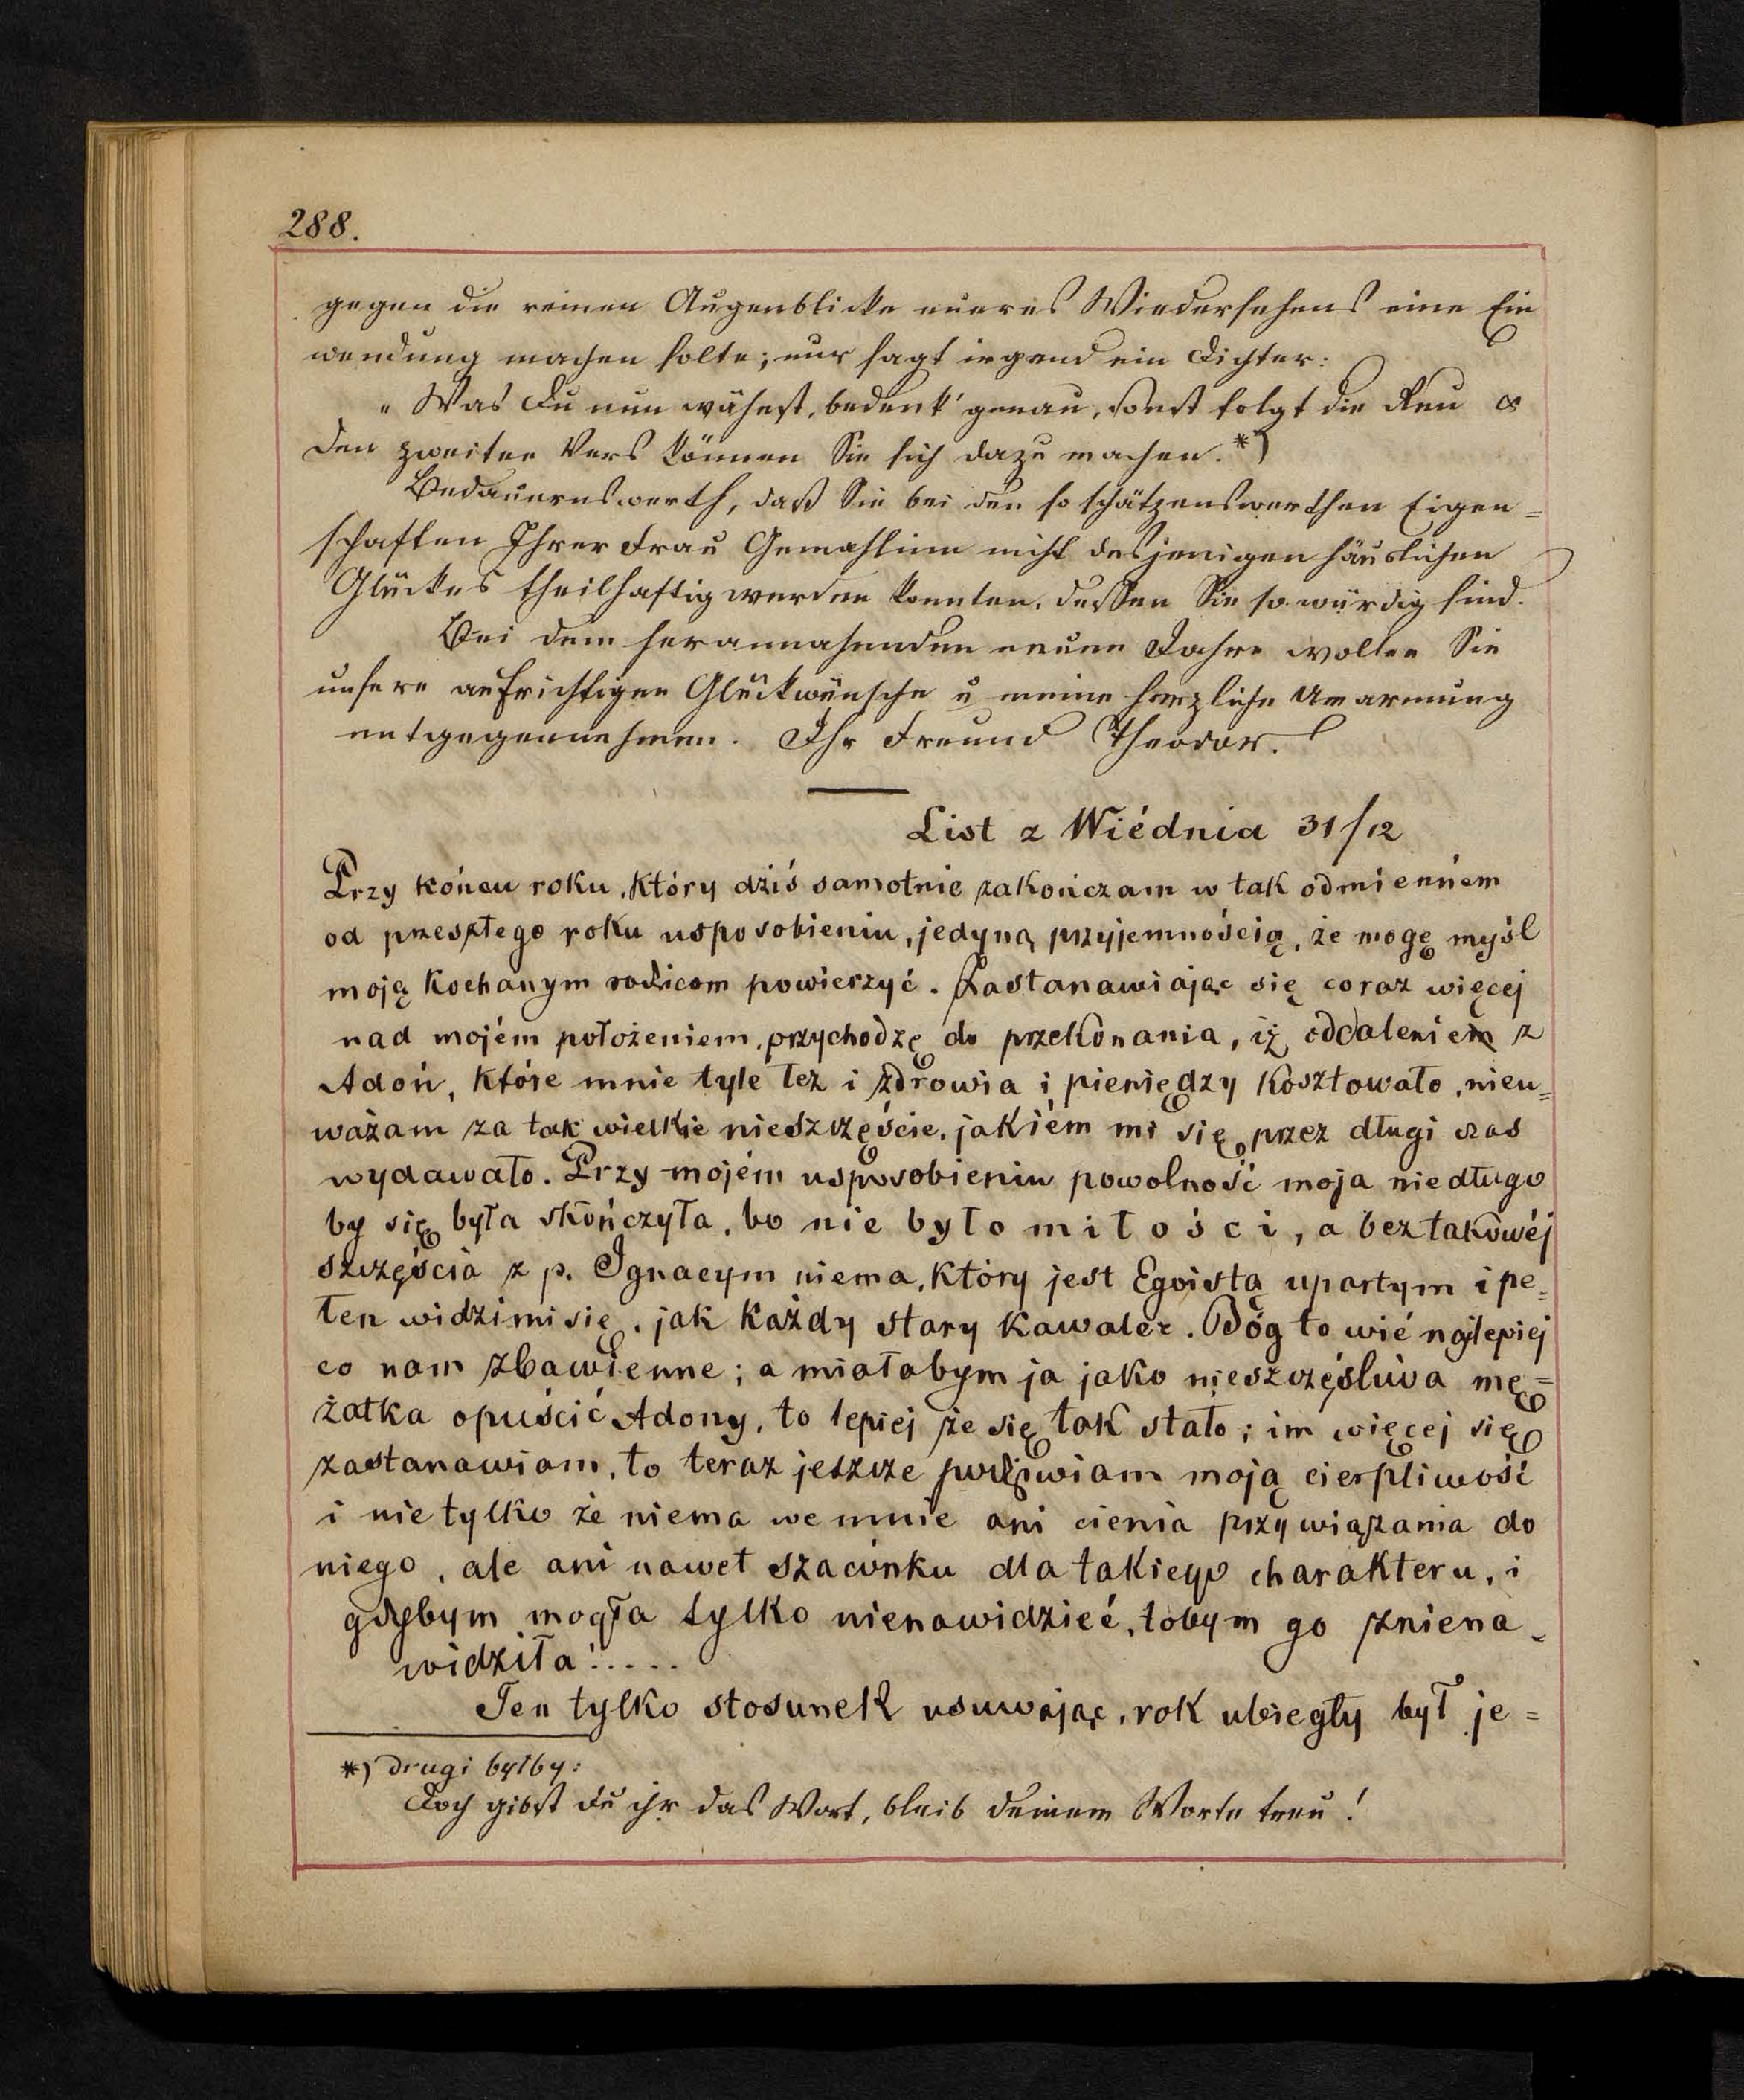 288.
gegen die reinen Augenblicke eueres Wiedersehens eine Ein
wendung machen solte; nur sagt irgend ein Dichter:
„Was Du nun wähnst, bedenk' genau, sonst folgt die Reu
den zweiten Vers können Sie sich dazu machen.*)
Bedauernswerth, daß Sie bei den so schätzenswerthen Eigen=
schaften Ihrer Frau Gemahlinn nicht desjenigen häuslichen
Glückes theilhaftig werden konnten, dessen Sie so würdig sind.
Bei dem herannahenden neuen Jahre wollen Sie
unsere aufrichtigen Glückwünsche u meine herzliche Umarmung
entgegennehmen. Ihr Freund Theodor.
List z Wiédnia 31/12
Przy końcu roku, który dziś samotnie zakończam w tak odmienném
od przeszłego roku usposobieniu, jedyną przyjemnością, że mogę myśl
moją kochanym rodzicom powierzyć. Zastanawiając się coraz więcej
nad mojém położeniem, przychodzę do przekonania, iż oddaleniem z
Adoń, które mnie tyle łez i zdrowia i pieniędzy kosztowało, nieu=
ważam za tak wielkie nieszczęście, jakiém mi się przez długi czas
wydawało. Przy mojém usposobieniu powolność moja niedługo
by się była skończyła, bo nie było miłości, a bez takowéj
szczęścia z p. Ignacym niema, który jest Egoistą upartym i pe=
łen widzimisię, jak każdy stary kawaler. Bóg to wié najlepiej
co nam zbawienne; a miałabym ja jako nieszczęśliwa mę=
żatka opuścić Adony, to lepiej że się tak stało; im więcej się
zastanawiam, to teraz jeszcze podziwiam moją cierpliwość
i nie tylko że niema we mnie ani cienia przywiązania do
niego, ale ani nawet szacunku dla takiego charakteru, i
gdybym mogła tylko nienawidzieć, tobym go zniena=
widziła!.....
Ten tylko stosunek usuwając, rok ubiegły był je=
*) drugi byłby:
Doch gibst du ihr das Wort, bleib deinem Worte treu!